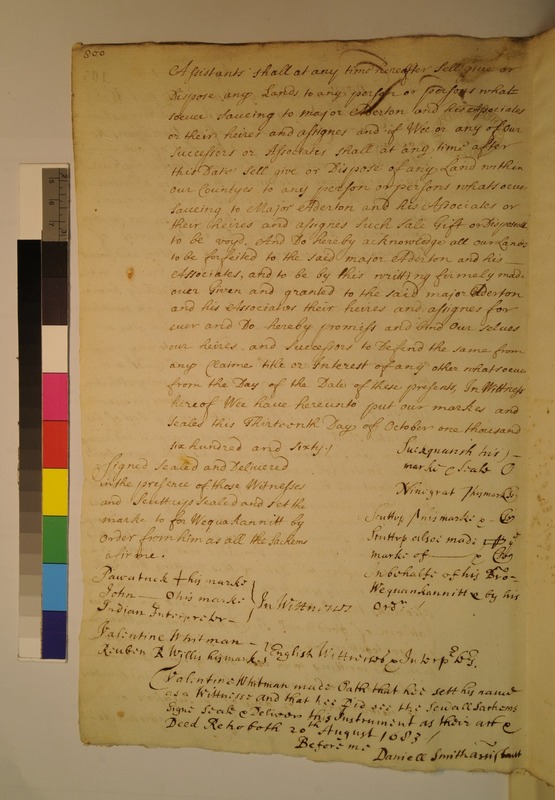 800
Assistants shall at any time hereafter Sell give or
Dispose any Lands to any person or persons what
soever saueing to major Aderton and his Associates
or their heires and assignes and if Wee or any of our
Successors or Associates shall at any time after
this Date Sell give or Dispose of any Land within
our Countyes to any person or persons whatsoeu
saueing to Major Aderton and his Associates or
their heires and assignes Such Sale Gift or
to be voyd. And Do hereby acknowledge all our Lands
to be forfeited to the said major Aderton and his
Associates, and to be by this writting firmely made
ouer Given and granted to the said major Aderton
and his Associates their heires and assignes for
euer and Do hereby promiss and bind Our Selues
our heires and Successors to Defend the same from
any Claime title or Interest of any other whatsoeuer
from the Day of the Date of these presents, In Wittness
hereof Wee have hereunto put our markes and
Sealed this Thirteenth Day of October one thousand
six hundred and sixty/
Signed Sealed and Delivered
in the presence of those Wittnesses
and Scuttup Sealed and set the
marke to for Wequakannitt by
order from him as all the Sachems
affirme.
Pawatuck + his marke
John — O his marke
Indian Interpreter —
In Wittness
Sucquansh his
marke & Seale O
Ninigrat his marke
Scuttup his marke &
Scuttup alsoe made ye
marke of — &
in behalfe of his Bro-
Wequankannitt & by his
Ordr /
Valentine Whitman —
Reuben R Willis his marke
English Wittnesses & Interp
Valentine Whitman made Oath that hee sett his name
as a Wittnesse and that hee Did see the Sevall Sachems
Signe Seale & Deliver this Instrument as their act &
Deed Rehoboth 20th August 1683/
Before me
Daniell Smith Assistant